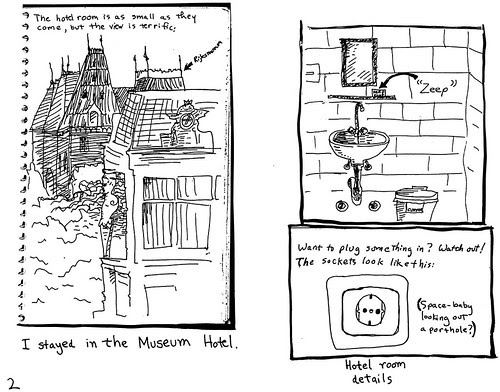 The hotel room is as small as they
come, but the view is terrific:
Rijksmuseum
I stayed in the Museum Hotel.
2
"Zeep"
Want to plug something in? Watch out!
The sockets look like this:
(Space-baby
looking out
a porthole?)
Hotel room
details